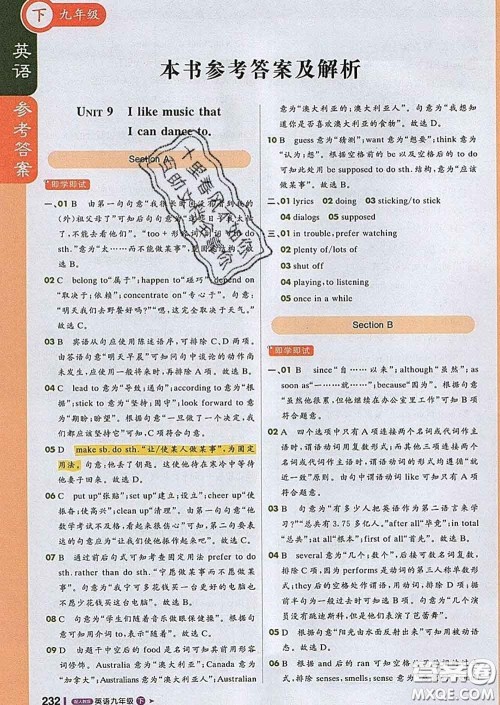 下 九年级
英语
参考答案
本书参考答案及解析
UNIT 9 I like music that
I can dance to.
Section A
即学即试
一、01 B 由第一句句意“我很长时间没有看到我的
(外)祖父母了”可知后句句意为“这些日子我太忙
了,不能去看他们”。“too+形容词
sth.”意为“太……而不能做某事”
述。故选 B。
02 C belong to“属于”; happen to“碰巧” depend on
“取决于;依赖”; concentrate on“专心于”。句意:
“明天我们去野餐好吗?”“说不准。这完全取决于天气。”
故选 C。
03 B 宾语从句应使用陈述语序,排除 C、D 两项。由
答语句意“明天早晨”可知问句中该句的动作尚
未发生,也排除 A 项,应使用一般将来时。故
选 B。
04 C lead to 意为“导致;通向”; according to 意为
“根据”; stick to 意为“坚持;固守”; look forward to 意
为“期盼;盼望”。句意为“一旦做了一个决定,我
们都应该坚持下去”,可知 C 项符合句意。
05 D make sb. do sth.“让/使某人做某事”,为固定
用法。句意:他丢了钥匙。这使他待在寒冷中等待
他妻子回来。故选 D。
06 C put up“张贴”; set up“建立;设立”; cheer up“使
高兴;使振奋”; clean up“清理”。由第一句句意“他
数学考试不及格,看起来很伤心”可知,第二句要表
达的句意应为“让我们使他振作起来”。故选 C。
07 B 通过前后句式可知考查固定用法 prefer to do
sth. rather than do sth.“宁愿做某事而不愿做某
事”。句意为“我宁可多花钱买一台更好的电脑
也不愿少花钱买这台电脑”。故选 B。
08 B 句意为“学生们随着音乐做眼保健操”。根据
句意,可知用介词 to 表示“随着”。故选 B。
09 D 由题干中空后的 food 是名词可知其前需用形
容词修饰。Australia 意为“澳大利亚”; Canada 意
为“加拿大”; Australians 意为“澳大利亚人”; Australian
232 配人教版 英语九年级 下
意为“澳大利亚的;澳大利亚人”。句意为“我想知
道你是否喜欢澳大利亚的食物”。故选 D。
10 B guess 意为“猜测”; want 意为“想要”; think 意
为“认为;想”。根据空格前的 be 和空格后的 to do
可知此处用 be supposed to do sth. 结构,意为“应该
做某事”。故选 B。
二、01 lyrics 02 doing 03 sticking/to stick
04 dialogs 05 supposed
三、01 in trouble, prefer watching
02 plenty of/lots of
03 shut off
04 playing, to listening
05 once in a while
Section B
即学即试
一、01 B since“自……以来”; although“虽然”; as
soon as“一……就……”; because“因为”。根据句意
“虽然天很晚,但他继续在办公室里工作”可知 B 项
符合题意。
02 A 四个选项中只有 A 项连接两个名词或代词作主
语时谓语动词用复数形式;而其他三项连接两个
名词或代词作主语时,根据最近的主语来确定谓
语动词形式。由谓语动词 are 可知此处填 A 项。
03 B 句意为“‘有多少人把英语作为第二语言来学
习?’‘总共有 3.75 多亿人。’”after all“毕竟”; in total
“总共”; at all“根本”; first of all“首先”。故选 B。
04 B several 意为“几个;数个”,后接可数名词复
数,排除 C 项;因为 performs 是动词的第三人称单数
形式,而 they 在空格处作谓语,因此排除 D 项;根
据固定搭配可知排除 A 项。句意为“几个演员
没有统一服装,但是他们表演了芭蕾舞”。
05 D 句意为“阳光由水面反射出来”,根据句意可
知应用被动语态。故选 D。
06 B
答案圈
MXQE.COM